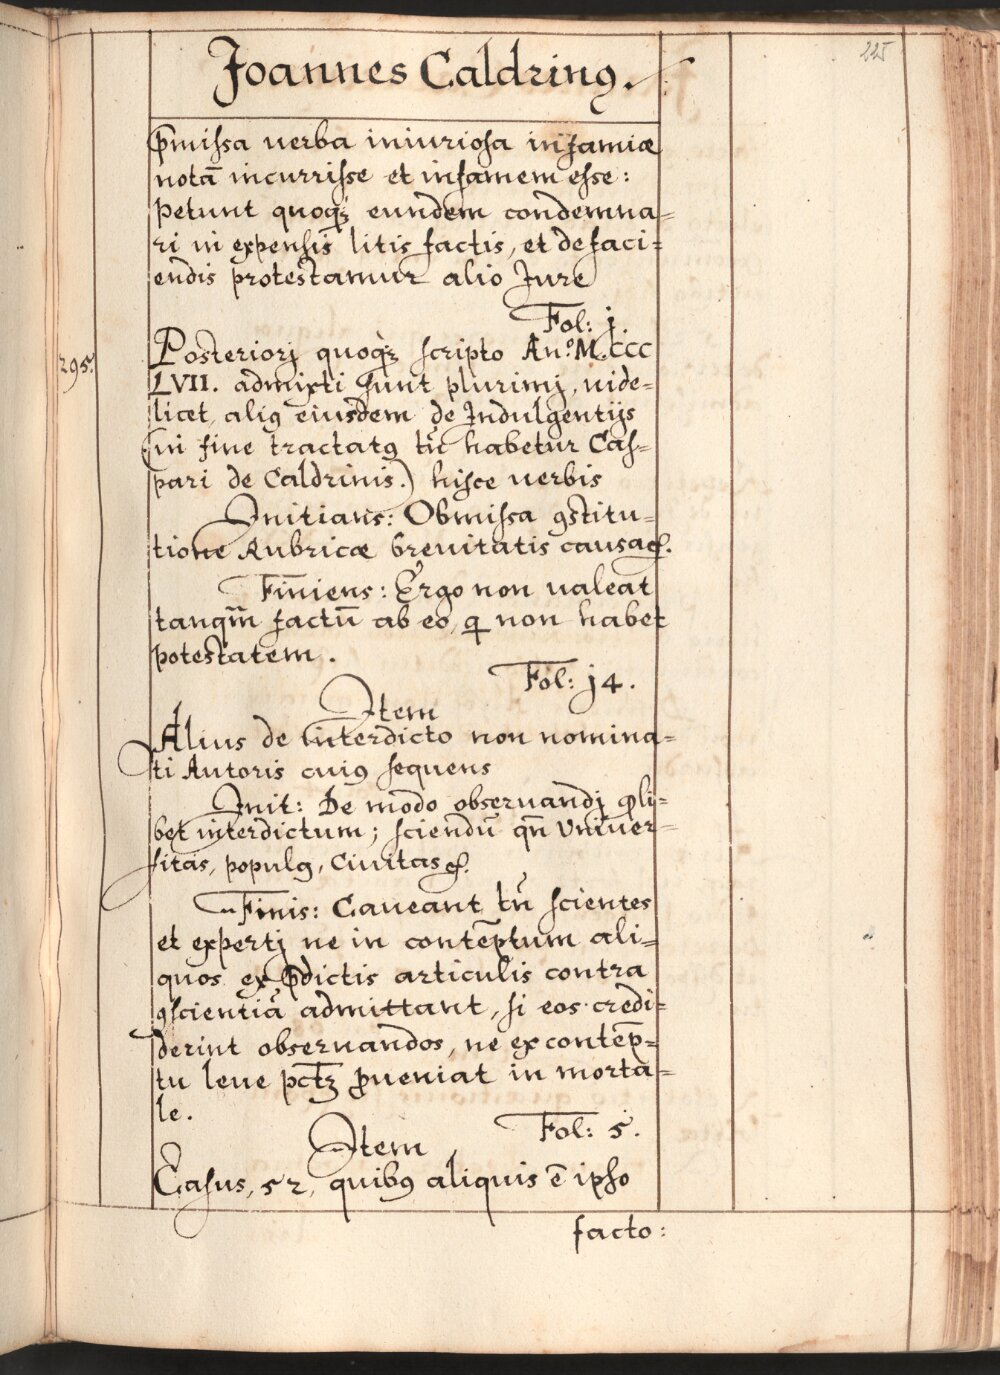 225
Joannes Caldrinꝰ.
p̄missa uerba iniuriosa infamiæ
notā incurrisse et infamem esse:
petunt quoqꝫ eundem condemna=
ri in expensis litis factis, et defaci=
endis protestamur alio Jure
Fol: j.
295.
Posteriorj quoqꝫ scripto Anº. M.CCC
LVII. admixti sunt plurimj, uide=
licet, aliꝰ eiusdem de Indulgentijs
(in fine tractatꝰ tn̄ habetur Cas=
pari de Caldrinis.) hisce uerbis
Initians: Obmissa ꝯstitu=
tione Rubricæ breuitatis causa ꝛc.
Finiens: Ergo non ualeat
tanqm̄ factū ab eo, q̄ non habet
potestatem.
Fol: j4.
Item
Alius de interdicto non nomina=
ti Autoris cuiꝰ sequens
Init: De modo obseruandj q̄li=
bet interdictum; sciendū qn̄ Vniuer=
sitas, populꝰ, Ciuitas ꝛc.
Finis: Caueant tn̄ scientes
et expertj ne in contēptum ali=
quos ex p̄dictis articulis contra
ꝯscientiā admittant, si eos credi=
derint obseruandos, ne ex contēp=
tu leue pct̄ꝫ ꝓueniat in morta=
le.
Fol: 5.
Item
Casus, 52, quibꝰ aliquis ē ipso
facto: